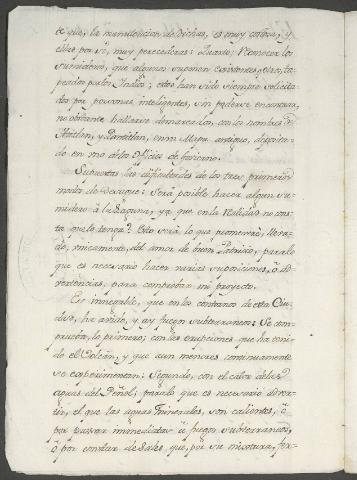 te que, la manutencion de dichas, es muy costosa, y
ellas por sí, muy perecederas: Quarto; Reconocer los
sumideros, que algunos suponen existentes, pero, ta-
peados por los Indios; estos han sido siempre solicita-
dos por personas inteligentes, sin poderse encontrar,
no obstante hallarse demarcados, con los nombres de
y Pantitlan, en un Mapa antiguo, deposita-
do en uno de los Oficios de
Supuestas las dificultades de los tres primeros
modos de desague: Será posible hacer algun su-
midero â la Laguna, ya que en la Realidad no cons-
ta que lo tenga? Esto será lo que promoveré, lleva-
do, unicamente, del amor de buen Patricio, para lo
que es necesario hacer varias suposiciones, ô ad-
vertencias, para comprobar mi proyecto.
Es innegable, que en los contornos de esta Ciu-
dad, ha avido, y ay fuegos subterraneos: Se com-
prueba, lo primero; con las erupciones que ha teni-
do el Bolcán, y que aun menores continuamente
se experimentan: Segundo, con el calor de las
aguas del Peñol; para lo que es necesario adver-
tir, el que las aguas minerales, son calientes, ô
por passar immediatas â fuegos subterraneos,
ô por constar de Sales que, por su mixtura, fer-